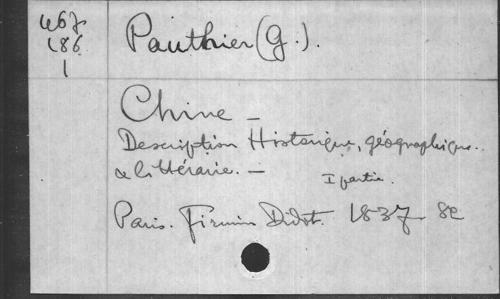 467
186
1
Pauthier (G.).
Chine —
Description Historique, géographique..
& littéraire. —
I partie.
Paris. Firmin Didot. 1837 8º